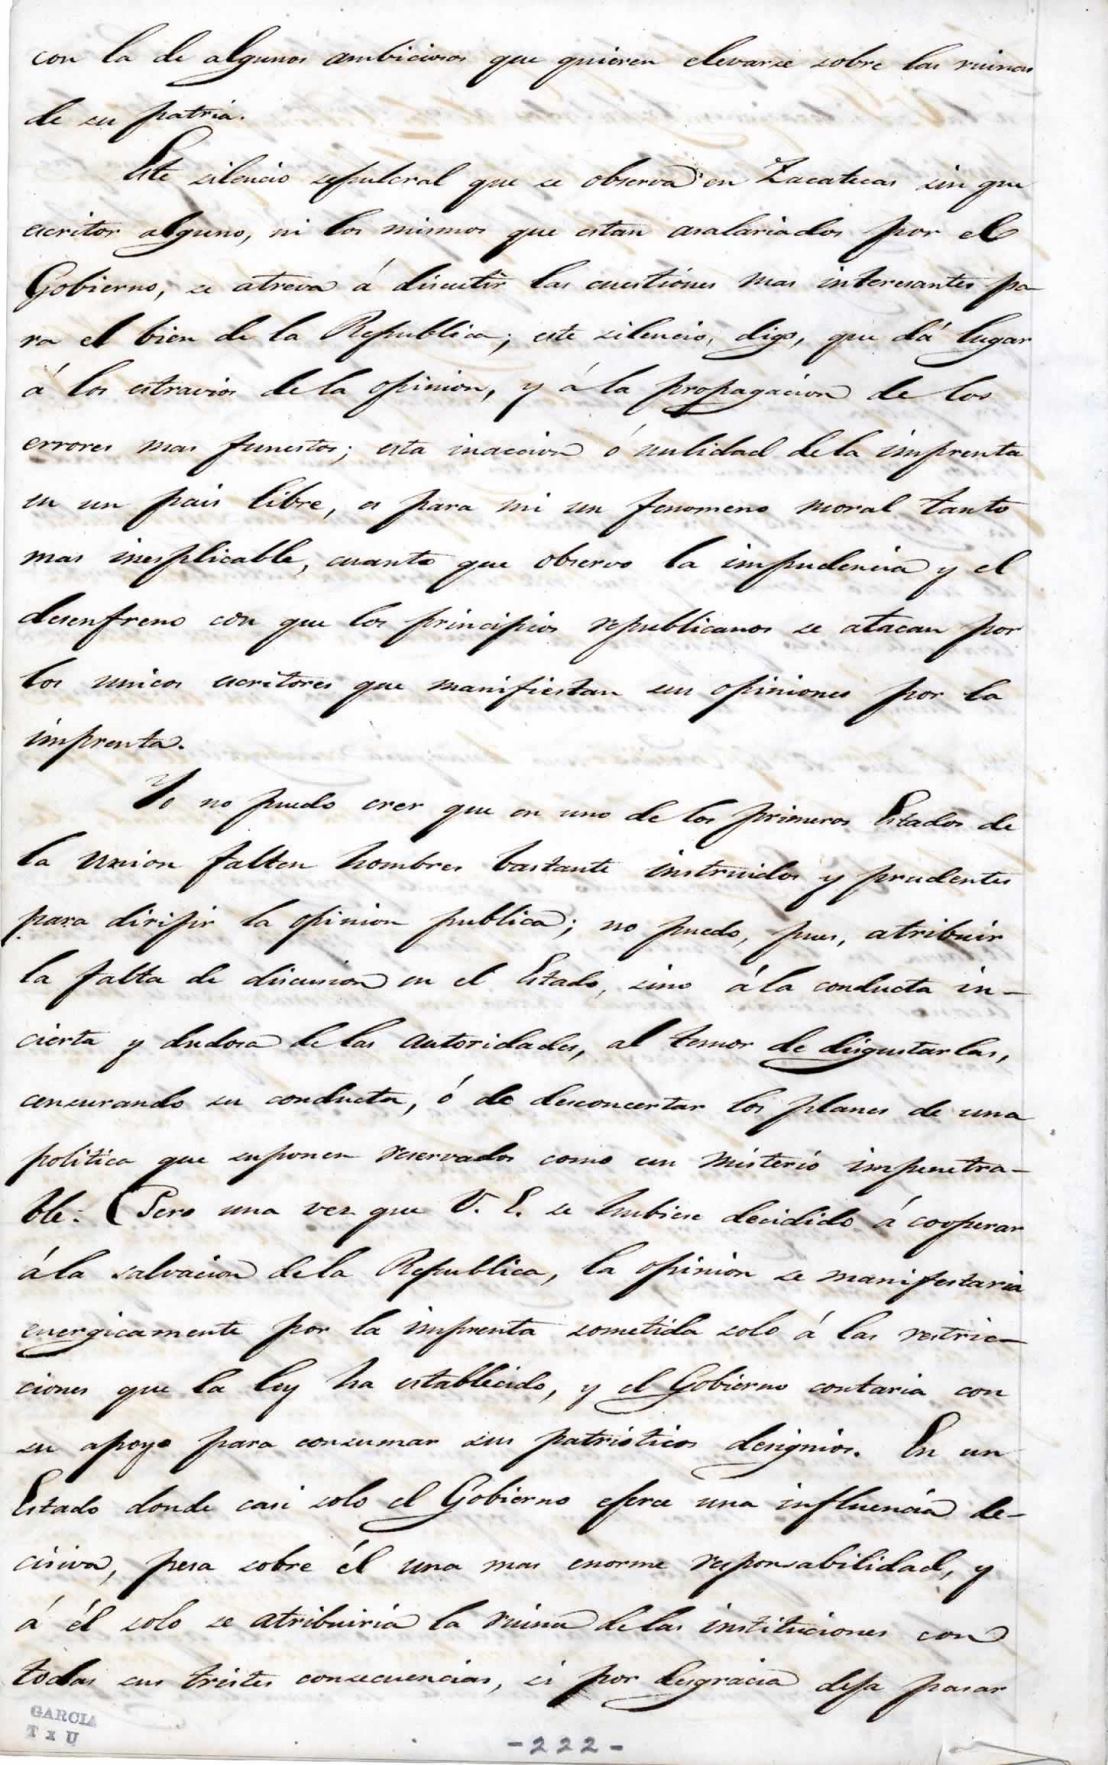 con la de algunos ambiciosos que quieren elevarse sobre las ruinas
de su patria.
Este silencio sepulcral que se observa en Zacatecas sin que
escritor alguno, ni los mismos que estan asalariados por el
Gobierno, se atreva á discutir las cuestiones mas interesantes pa-
ra el bien de la Republica; este silencio, digo, que dá lugar
á los estravios de la opinion, y á la propagacion de los
errores mas funestos; esta inaccion ó nulidad de la imprenta
en un pais libre, es para mi un fenomeno moral tanto
mas inesplicable, cuanto que observo la impudencia y el
desenfreno con que los principios republicanos se atacan por
los unicos escritores que manifiestan sus opiniones por la
imprenta.
Yo no puedo creer que en uno de los primeros Estados de
la Union falten hombres bastante instruidos y prudentes
para dirijir la opinion publica; no puedo, pues, atribuir
la falta de discusion en el Estado, sino á la conducta in-
cierta y dudosa de las autoridades, al temor de disgustarlas,
censurando su conducta, ó de desconcertar los planes de una
politica que suponen reservados como un misterio impenetra-
ble. (Pero una vez que V. E. se hubiese decidido á cooperar
á la salvacion de la Republica, la opinion se manifestaria
energicamente por la imprenta sometida solo á las restric-
ciones que la ley ha establecido, y el Gobierno contaria con
su apoyo para consumar sus patrioticos designios. En un
Estado donde casi solo el Gobierno ejerce una influencia de-
cisiva, pesa sobre él una mas enorme responsabilidad, y
á él solo se atribuiria la ruina de las instituciones con
todas sus tristes consecuencias, si por desgracia deja pasar
GARCIA
T x U
-222-